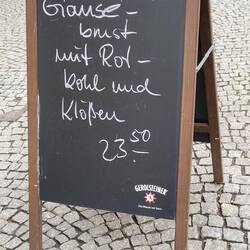 Gänse-
brust
mit Rot-
kohl und
Klößen
23.50
GEROLSTEINER